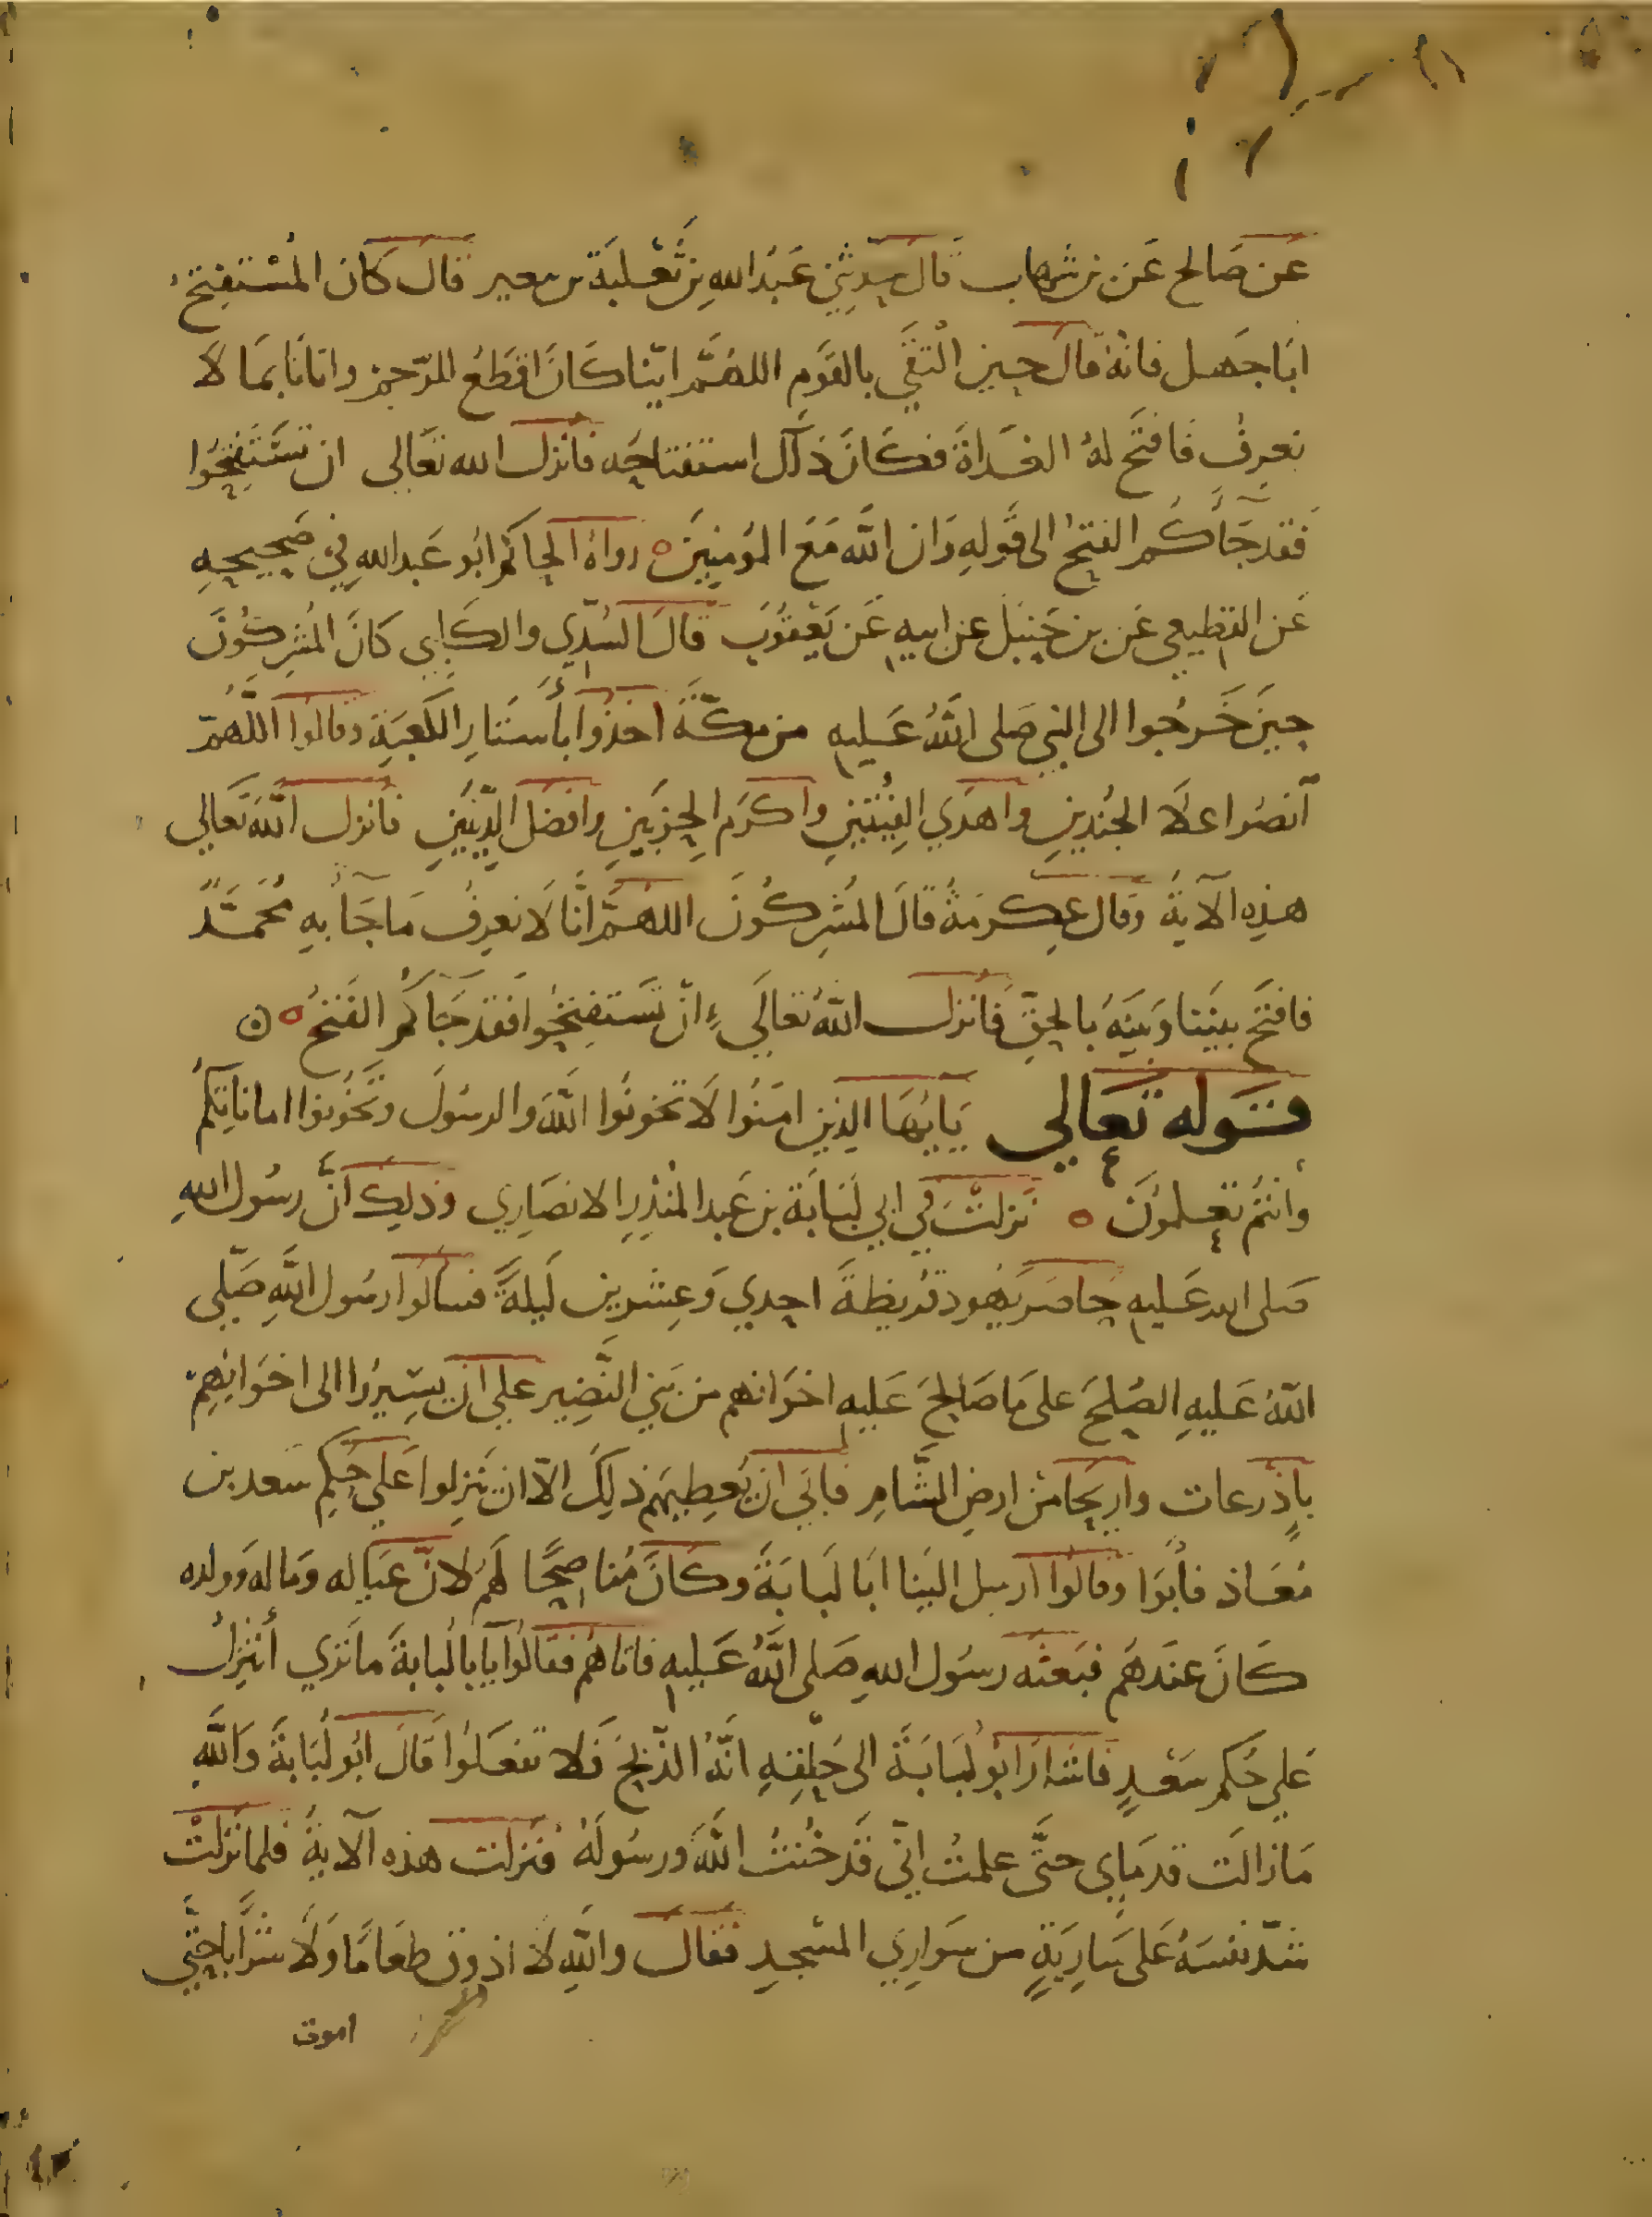 عن صالح عَن بن شهاب قال حدثني عَبْد الله بن ثَعْلبَة بن صعير قال كان المُسْتَفتح
ابَا جَهل فانهُ قال حين التَقَي بالقوم اللهُمَّ ايّنا كَانَ اقطَعُ للرّحِم واتانَا بمَا لَا
نعرِفُ فَافتَح لهُ الغدَاةَ فكَانَ ذَلك استفتاحُه فانزل الله تعَالى ان تَسْتَفتِحُوا
فَقد جَآكُم الفتحُ الى قَولِهِ وَان اللّه مَعَ المؤمِنِينَ رواهُ الحاكم ابُو عَبد اللهِ في صَحِيحِهِ
عَن القطيعي عَن بن حَنبَل عن ابيهِ عَن يَعْقوُبَ قَالَ السُدّي والكلبي كانَ المُشرِكُونَ
حِينَ خَرجُوا الى النبي صَلى اللَّهُ عَليهِ من مكَّةَ اخذوا بأسَتارِ الكعبَةِ وقالوُا اللّهمّ
آنصُر اعلَا الجُندَينِ واهدَي الفِئتَينِ واكرَم الحِزبَينِ وافضَل الدِّينَينِ فانزل اللَّهُ تعَالى
هذِه الآيةُ وَقال عِكرمَةُ قالَ المُشرِكُونَ اللهُمَّ انَّا لَا نعرِفُ مَا جَآ بِهِ مُحمَّدٌ
فافتَح بينَنا وَبينَهُ بالحقّ فَانزل اللّهُ تعَالَى انّ تَستفتِحُوا فقد جَآكُم الفَتحُ
قوله تعَالى يَايّهَا الذِين امَنُوا لَا تخونُوا اللَّهَ والرسُولَ وتَخُونوا اماناتِكُم
وانتُم تعلمُونَ نزلتْ في ابي لُبَابَة بن عَبد المنْذِرِ الانصَارِي وذلِك انَّ رسُول اللهِ
صلى الله عَليهِ حاصَر يَهُود قُريظةَ احدي وَعِشرين لَيلةً فسالُوا رسُول اللَّهِ صَلّى
اللّهُ عَليهِ الصُلحَ على مَا صَالحَ عَليهِ اخوَانهم من بَني النَّضِير على ان يسِيرُوا الى اخوَانِهِم
باذرعات واريحَا من ارضِ الشَّامِ فابَي ان يُعطِيهم ذلِكَ الاّ ان يَنزلوا عَلي حُكمِ سَعد بن
مُعَاذ فابَوا وقالوُا ارسِل الَينا ابَا لبابَةَ وكَانَ مُناصِحًا لهُم لانّ عيَاله ومَاله وَولده
كانَ عندَهُم فبَعثه رسُول اللهِ صَلى اللَّهُ عَليهِ فاتاهُم فقَالوُا يآبا لُبابةَ ما تَري أننزلُ
عَلي حُكم سَعْدٍ فاشارَ ابُو لُبَابَةَ الى حَلقِهِ انَّهُ الذّبحَ فَلا تفعَلُوا قَالَ ابُو لُبَابةَ وَاللَّهِ
مَا زالَت قدمَاي حتَّى علمتُ انّي قَد خُنتُ اللَّهَ وَرسُولَهُ فنَزلت هذه الآيةُ فلما نَزلتْ
شدّ نفسَهُ عَلى سَارِيَةٍ من سَوَارِيَ المسْجِدِ فقال واللَّهِ لا اذوق طعَامًا وَلَا شرَابا حتّي
اموت